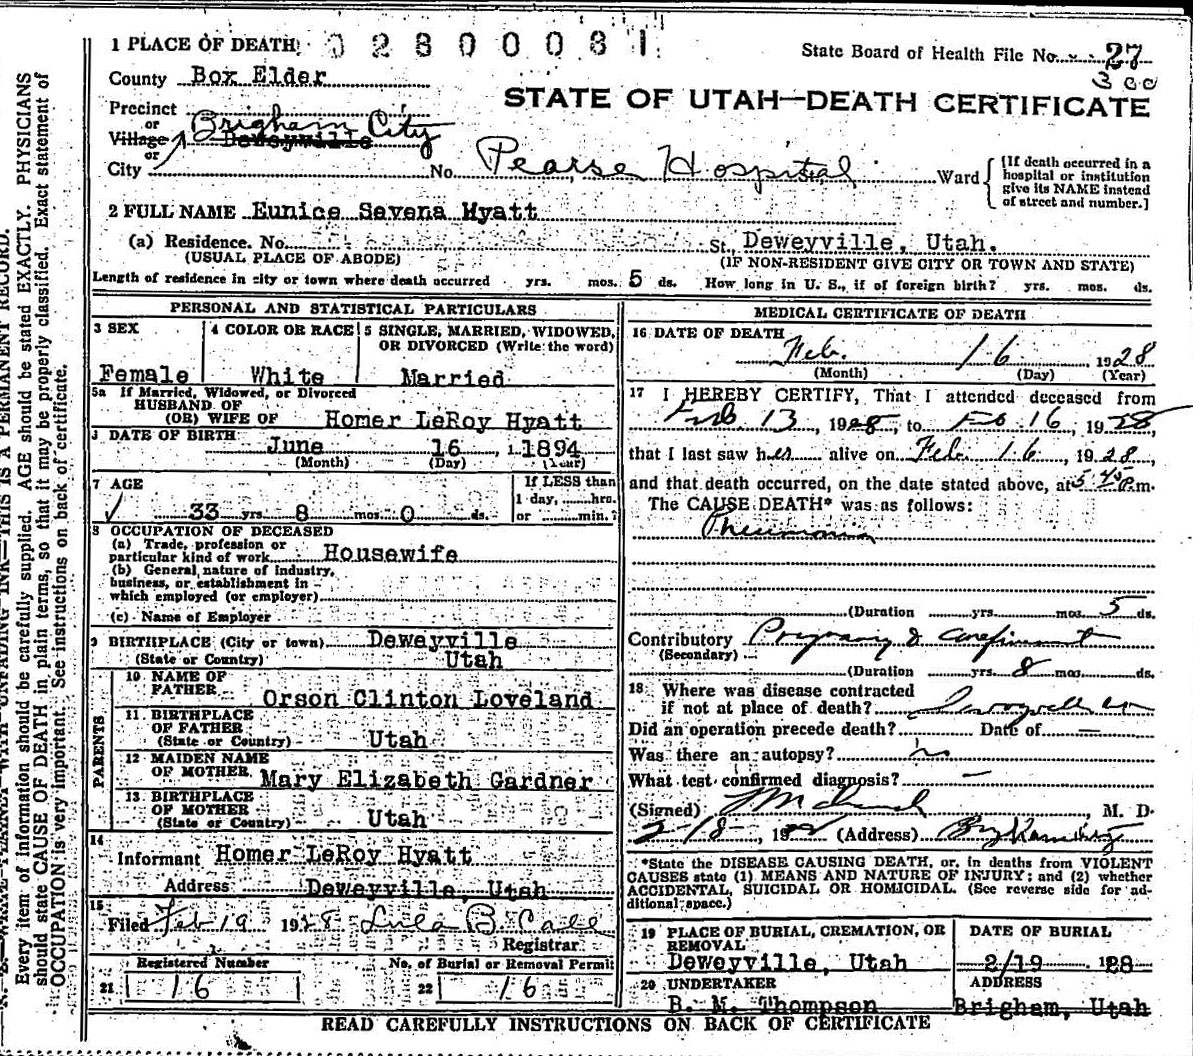 1 PLACE OF DEATH 0 2 8 0 0 0 8 1
State Board of Health File No. 27
300
County Box Elder
STATE OF UTAH—DEATH CERTIFICATE
Precinct
or
Village Deweyville Brigham City
or
City No. Pearse Hospital Ward
[If death occurred in a
hospital or institution
give its NAME instead
of street and number.]
2 FULL NAME Eunice Savena Hyatt
(a) Residence. No. St. Deweyville, Utah.
(USUAL PLACE OF ABODE) (IF NON-RESIDENT GIVE CITY OR TOWN AND STATE)
Length of residence in city or town where death occurred yrs. mos. 5 ds. How long in U. S., if of foreign birth? yrs. mos. ds.
PERSONAL AND STATISTICAL PARTICULARS
3 SEX
Female
4 COLOR OR RACE
White
5 SINGLE, MARRIED, WIDOWED,
OR DIVORCED (Write the word)
Married
5a If Married, Widowed, or Divorced
HUSBAND OF
(OR) WIFE OF Homer LeRoy Hyatt
DATE OF BIRTH June 16, 1894
(Month) (Day) (Year)
7 AGE
33 yrs. 8 mos. 0 ds.
If LESS than
1 day, hrs.
or min.?
8 OCCUPATION OF DECEASED
(a) Trade, profession or
particular kind of work Housewife
(b) General nature of industry,
business, or establishment in
which employed (or employer)
(c) Name of Employer
9 BIRTHPLACE (City or town) Deweyville
(State or Country) Utah
PARENTS
10 NAME OF
FATHER Orson Clinton Loveland
11 BIRTHPLACE
OF FATHER
(State or Country) Utah
12 MAIDEN NAME
OF MOTHER Mary Elizabeth Gardner
13 BIRTHPLACE
OF MOTHER
(State or Country) Utah
14
Informant Homer LeRoy Hyatt
Address Deweyville, Utah
15
Filed Feb 19 1928 Lula B. Call
Registrar
Registered Number
21 16
No. of Burial or Removal Permit
22 16
MEDICAL CERTIFICATE OF DEATH
16 DATE OF DEATH
Feb. 16 1928
(Month) (Day) (Year)
17 I HEREBY CERTIFY, That I attended deceased from
Feb 13, 1928, to Feb 16, 1928,
that I last saw her alive on Feb 16, 1928,
and that death occurred, on the date stated above, at 5 45 p.m.
The CAUSE DEATH* was as follows:
Pneumonia
(Duration yrs. mos. 5 ds.
Contributory Pregnancy & Confinement
(Secondary)
(Duration yrs. 8 mos. ds.
18 Where was disease contracted
if not at place of death?
Did an operation precede death? Date of —
Was there an autopsy? no
What test confirmed diagnosis? —
(Signed) M. D.
2-18-, 19 (Address)
*State the DISEASE CAUSING DEATH, or, in deaths from VIOLENT
CAUSES state (1) MEANS AND NATURE OF INJURY; and (2) whether
ACCIDENTAL, SUICIDAL OR HOMICIDAL. (See reverse side for ad-
ditional space.)
19 PLACE OF BURIAL, CREMATION, OR
REMOVAL
Deweyville, Utah
DATE OF BURIAL
2/19 1928
20 UNDERTAKER
B. M. Thompson
ADDRESS
Brigham, Utah
READ CAREFULLY INSTRUCTIONS ON BACK OF CERTIFICATE
THIS IS A PERMANENT RECORD.
Every item of information should be carefully supplied. AGE should be stated EXACTLY. PHYSICIANS
should state CAUSE OF DEATH in plain terms, so that it may be properly classified. Exact statement of
OCCUPATION is very important. See instructions on back of certificate.